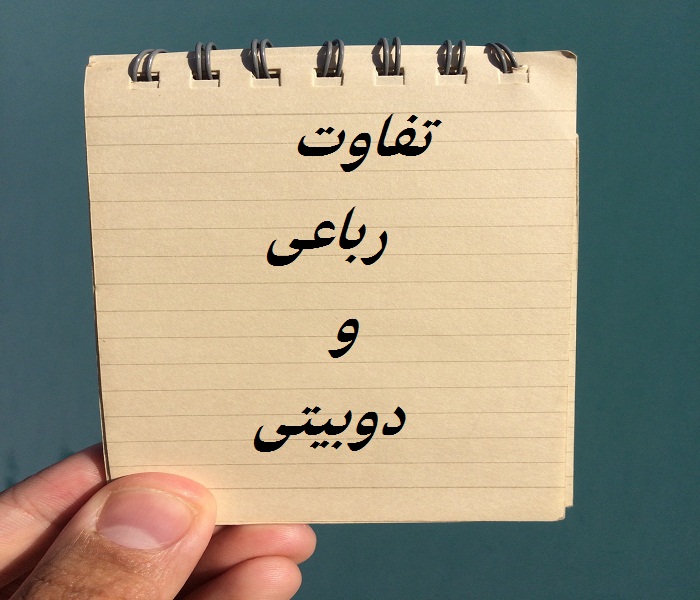 تفاوت
رباعی
و
دوبیتی